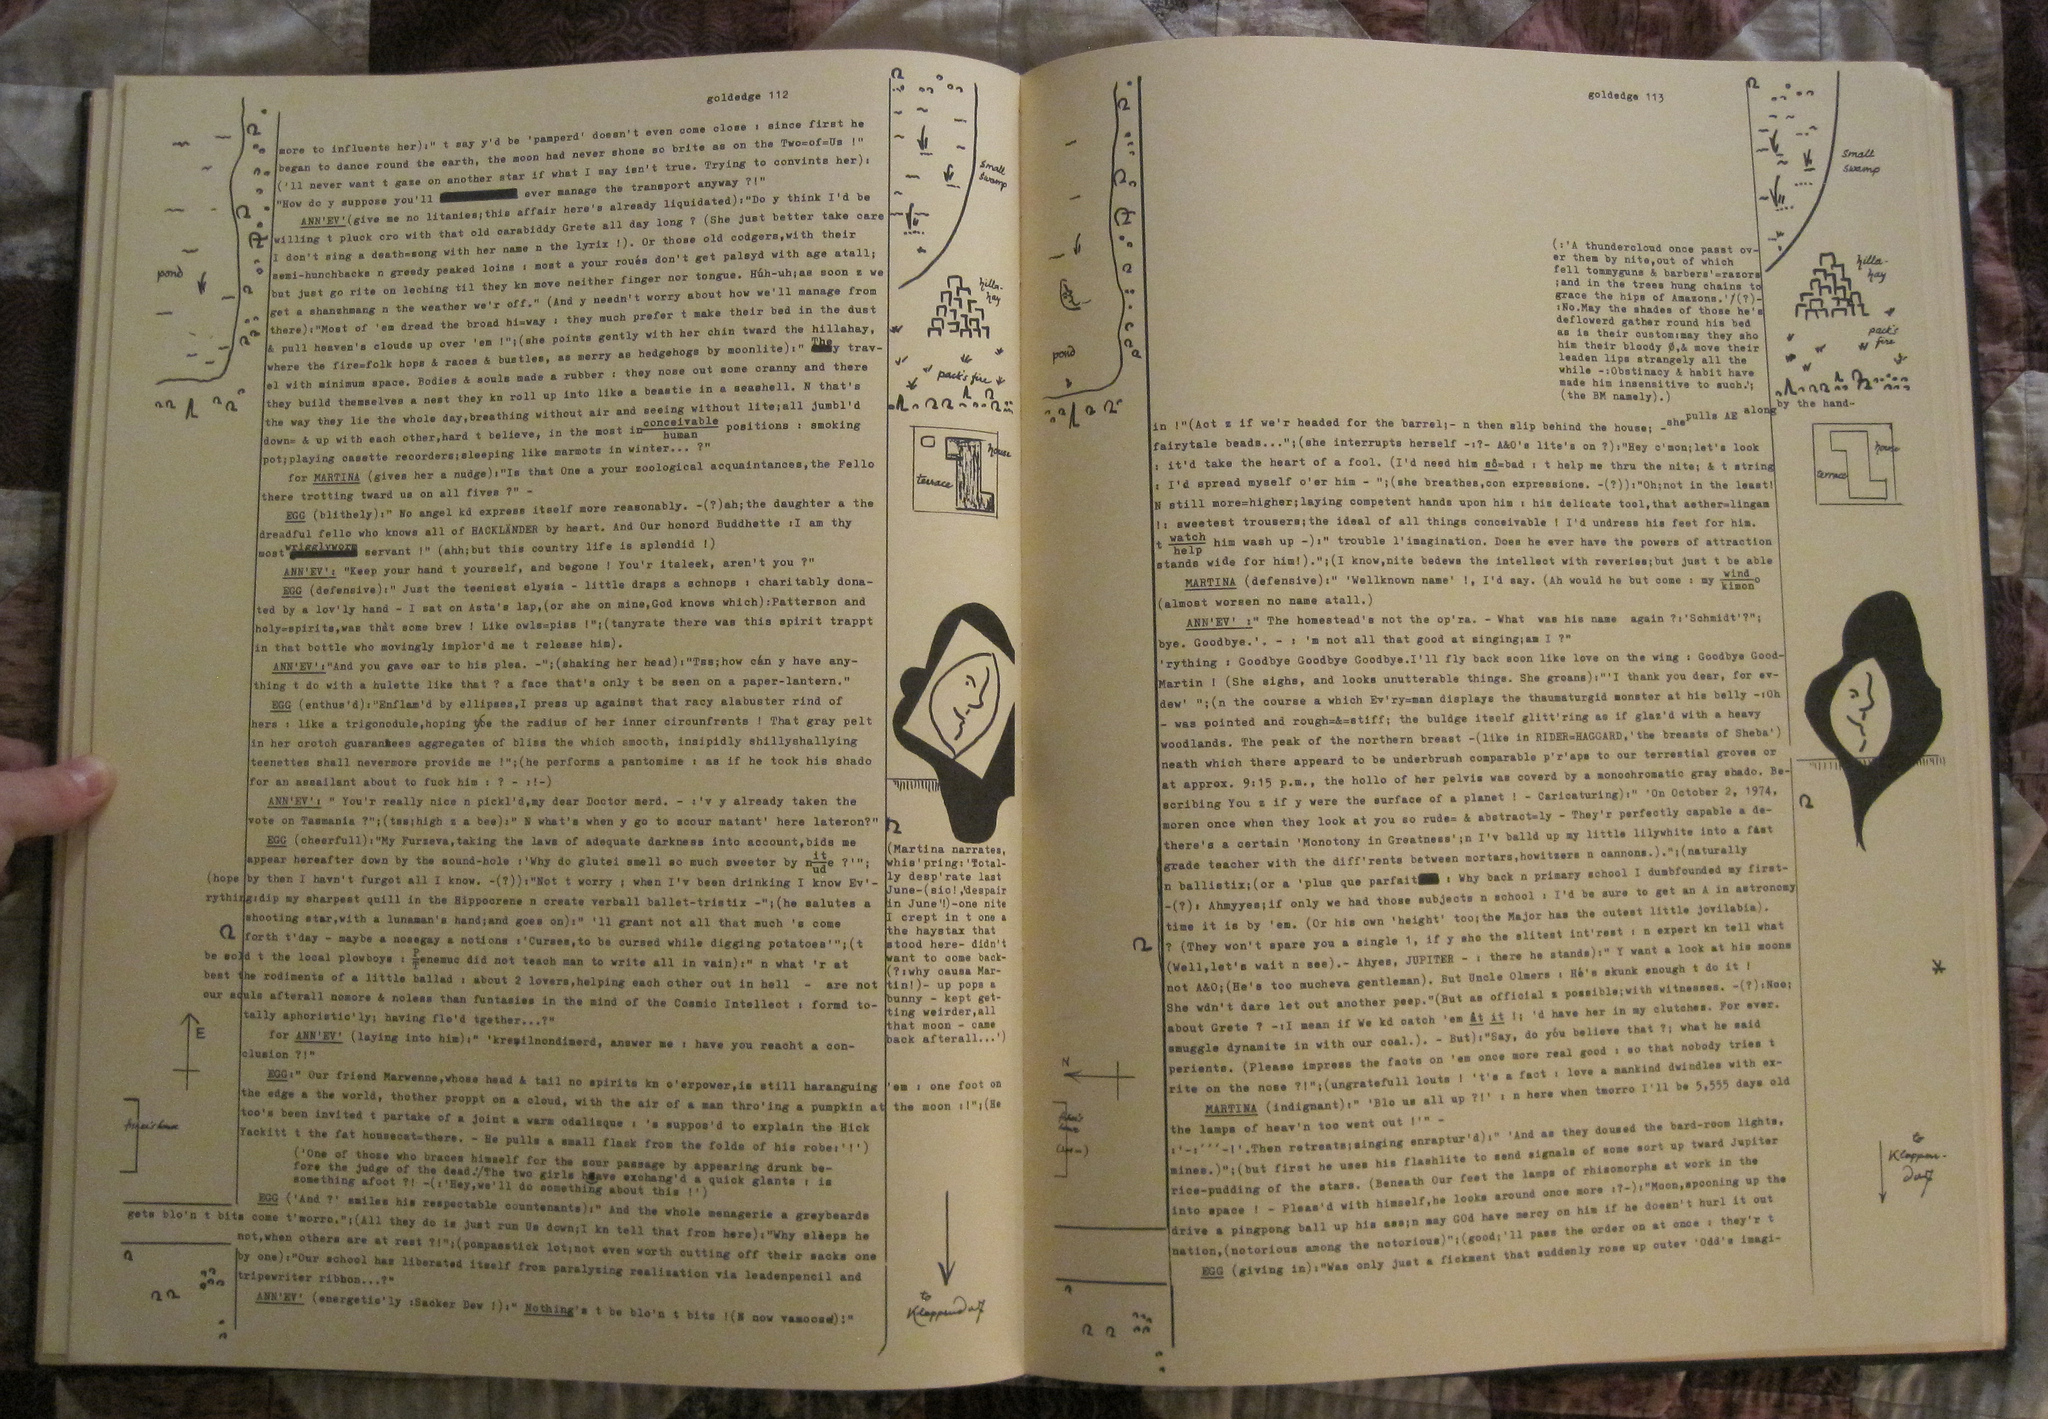 goldedge 112
more to influente her):" t say y'd be 'pamperd' doesn't even come close : since first he
began to dance round the earth, the moon had never shone so brite as on the Two=of=Us !"
('ll never want t gaze on another star if what I say isn't true. Trying to convints her):
"How do y suppose you'll ever manage the transport anyway ?!"
ANN'EV'(give me no litanies;this affair here's already liquidated):"Do y think I'd be
willing t pluck cro with that old carabiddy Grete all day long ? (She just better take care
I don't sing a death=song with her name n the lyrix !). Or those old codgers,with their
semi-hunchbacks n greedy peaked loins : most a your roués don't get palsyd with age atall;
but just go rite on leching til they kn move neither finger nor tongue. Húh-uh;as soon z we
get a shanzhmang n the weather we'r off." (And y needn't worry about how we'll manage from
there):"Most of 'em dread the broad hi=way : they much prefer t make their bed in the dust
& pull heaven's clouds up over 'em !";(she points gently with her chin tward the hillahay,
where the fire=folk hops & races & bustles, as merry as hedgehogs by moonlite):" They trav-
el with minimum space. Bodies & souls made a rubber : they nose out some cranny and there
they build themselves a nest they kn roll up into like a beastie in a seashell. N that's
the way they lie the whole day,breathing without air and seeing without lite;all jumbl'd
down= & up with each other,hard t believe, in the most inconceivable human positions : smoking
pot;playing casette recorders;sleeping like marmots in winter... ?"
for MARTINA (gives her a nudge):"Is that One a your zoological acquaintances,the Fello
there trotting tward us on all fives ?" -
EGG (blithely):" No angel kd express itself more reasonably. -(?)ah;the daughter a the
dreadful fello who knows all of HACKLÄNDER by heart. And Our honord Buddhette :I am thy
most wrigglyworm servant !" (ahh;but this country life is splendid !)
ANN'EV': "Keep your hand t yourself, and begone ! You'r italeek, aren't you ?"
EGG (defensive):" Just the teeniest elysia - little draps a schnops : charitably dona-
ted by a lov'ly hand - I sat on Asta's lap,(or she on mine,God knows which):Patterson and
holy=spirits,was thàt some brew ! Like owls=piss !";(tanyrate there was this spirit trappt
in that bottle who movingly implor'd me t release him).
ANN'EV':"And you gave ear to his plea. -";(shaking her head):"Tss;how cán y have any-
thing t do with a hulette like that ? a face that's only t be seen on a paper-lantern."
EGG (enthus'd):"Enflam'd by ellipses,I press up against that racy alabuster rind of
hers : like a trigonodule,hoping tbe the radius of her inner circunfrents ! That gray pelt
in her crotch guarantees aggregates of bliss the which smooth, insipidly shillyshallying
teenettes shall nevermore provide me !";(he performs a pantomime : as if he took his shado
for an assailant about to fuck him : ? - :!-)
ANN'EV': " You'r really nice n pickl'd,my dear Doctor merd. - :'v y already taken the
vote on Tasmania ?";(tss;high z a bee):" N what's when y go to scour matant' here lateron?"
EGG (cheerfull):"My Furzeva,taking the laws of adequate darkness into account,bids me
appear hereafter down by the sound-hole :'Why do glutei smell so much sweeter by nite ud ?'";
(hope by then I havn't furgot all I know. -(?)):"Not t worry ; when I'v been drinking I know Ev'-
rything:dip my sharpest quill in the Hippocrene n create verball ballet-tristix -";(he salutes a
shooting star,with a lunaman's hand;and goes on):" 'll grant not all that much 's come
forth t'day - maybe a nosegay a notions :'Curses,to be cursed while digging potatoes'";(t
be sold t the local plowboys : enemuc did not teach man to write all in vain):" n what 'r at
best the rodiments of a little ballad : about 2 lovers,helping each other out in hell - are not
our souls afterall nomore & noless than funtasies in the mind of the Cosmic Intellect : formd to-
tally aphoristic'ly; having fle'd tgether...?"
for ANN'EV' (laying into him):" 'kreuilnondimerd, answer me : have you reacht a con-
clusion ?!"
EGG:" Our friend Marwenne,whose head & tail no spirits kn o'erpower,is still haranguing 'em : one foot on
the edge a the world, thother proppt on a cloud, with the air of a man thro'ing a pumpkin at the moon :!";(He
too's been invited t partake of a joint a warm odalisque : 's suppos'd to explain the Hick
Yackitt t the fat housecat=there. - He pulls a small flask from the folds of his robe:'!')
('One of those who braces himself for the sour passage by appearing drunk be-
fore the judge of the dead.'/The two girls have exchang'd a quick glants : is
something afoot ?! -(:'Hey,we'll do something about this !')
EGG ('And ?' smiles his respectable countenants):" And the whole menagerie a greybeards
gets blo'n t bits come t'morro.";(All they do is just run Us down;I kn tell that from here):"Why sleeps he
not,when others are at rest ?!";(pompasstick lot;not even worth cutting off their sacks one
by one):"Our school has liberated itself from paralyzing realization via leadenpencil and
tripewriter ribbon...?"
ANN'EV' (energetic'ly :Sacker Dew !):" Nothing's t be blo'n t bits !(N now vamoose):"
pond
small
swamp
hilla-
hay
pack's fire
house
terrace
(Martina narrates,
whis'pring:'Total-
ly desp'rate last
June-(sio!,'despair
in June'!)-one nite
I crept in t one a
the haystax that
stood here- didn't
want to come back-
(?:why causa Mar-
tin!)- up pops a
bunny - kept get-
ting weirder,all
that moon - came
back afterall...')
E
to
Klappendorf
goldedge 113
(:'A thundercloud once passt ov-
er them by nite,out of which
fell tommyguns & barbers'=razors
;and in the trees hung chains to
grace the hips of Amazons.'/(?)-
:No.May the shades of those he's
deflowerd gather round his bed
as is their custom:may they sho
him their bloody Ø,& move their
leaden lips strangely all the
while -:Obstinacy & habit have
made him insensitive to such.';
(the BM namely).)
in !"(Act z if we'r headed for the barrel;- n then slip behind the house; -she pulls AE along by the hand-
fairytale beads...";(she interrupts herself -:?- A&O's lite's on ?):"Hey c'mon;let's look
: it'd take the heart of a fool. (I'd need him sô=bad : t help me thru the nite; & t string
: I'd spread myself o'er him - ";(she breathes,con expressione. -(?)):"Oh;not in the least!
N still more=higher;laying competent hands upon him : his delicate tool,that aether=lingam
!: sweetest trousers;the ideal of all things conceivable ! I'd undress his feet for him.
t watch help him wash up -):" trouble l'imagination. Does he ever have the powers of attraction
stands wide for him!).";(I know,nite bedews the intellect with reveries;but just t be able
MARTINA (defensive):" 'Wellknown name' !, I'd say. (Ah would he but come : my wind kimono
(almost worsen no name atall.)
ANN'EV' :" The homestead's not the op'ra. - What was his name again ?:'Schmidt'?";
bye. Goodbye.'. - : 'm not all that good at singing;am I ?"
'rything : Goodbye Goodbye Goodbye.I'll fly back soon like love on the wing : Goodbye Good-
Martin ! (She sighs, and looks unutterable things. She groans):"'I thank you dear, for ev-
dew' ";(n the course a which Ev'ry=man displays the thaumaturgid monster at his belly -:Oh
- was pointed and rough=&=stiff; the buldge itself glitt'ring as if glaz'd with a heavy
woodlands. The peak of the northern breast -(like in RIDER=HAGGARD,'the breasts of Sheba')
neath which there appeard to be underbrush comparable p'r'aps to our terrestial groves or
at approx. 9:15 p.m., the hollo of her pelvis was coverd by a monochromatic gray shado. Be-
scribing You z if y were the surface of a planet ! - Caricaturing):" 'On October 2, 1974,
moren once when they look at you so rude= & abstract=ly - They'r perfectly capable a de-
there's a certain 'Monotony in Greatness';n I'v balld up my little lilywhite into a fast
grade teacher with the diff'rents between mortars,howitzers n cannons.).";(naturally
n ballistix;(or a 'plus que parfait : Why back n primary school I dumbfounded my first-
-(?): Ahmyyes;if only we had those subjects n school : I'd be sure to get an A in astronomy
time it is by 'em. (Or his own 'height' too;the Major has the cutest little jovilabia).
? (They won't spare you a single 1, if y sho the slitest int'rest : n expert kn tell what
(Well,let's wait n see).- Ahyes, JUPITER - : there he stands):" Y want a look at his moons
not A&O;(He's too mucheva gentleman). But Uncle Olmers : Hé's skunk enough t do it !
She wdn't dare let out another peep."(But as official z possible;with witnesses. -(?):Noe;
about Grete ? -:I mean if We kd catch 'em At it !; 'd have her in my clutches. For ever.
smuggle dynamite in with our coal.). - But):"Say, do yóu believe that ?; what he said
perients. (Please impress the facts on 'em once more real good : so that nobody tries t
rite on the nose ?!";(ungratefull louts ! 't's a fact : love a mankind dwindles with ex-
MARTINA (indignant):" 'Blo us all up ?!' : n here when tmorro I'll be 5,555 days old
the lamps of heav'n too went out !'" -
:'-:-'''-!'.Then retreats;singing enraptur'd):" 'And as they doused the bard-room lights,
mines.)";(but first he uses his flashlite to send signals of some sort up tward Jupiter
rice-pudding of the stars. (Beneath Our feet the lamps of rhisomorphs at work in the
into space ! - Pleas'd with himself,he looks around once more :?-):"Moon,spooning up the
drive a pingpong ball up his ass;n may GOd have mercy on him if he doesn't hurl it out
nation,(notorious among the notorious)";(good;'ll pass the order on at once : they'r t
EGG (giving in):"Was only just a fickment that suddenly rose up outev 'Odd's imagi-
pond
small
swamp
hilla-
hay
pack's
fire
house
terrace
N
to
Klappen-
dorf